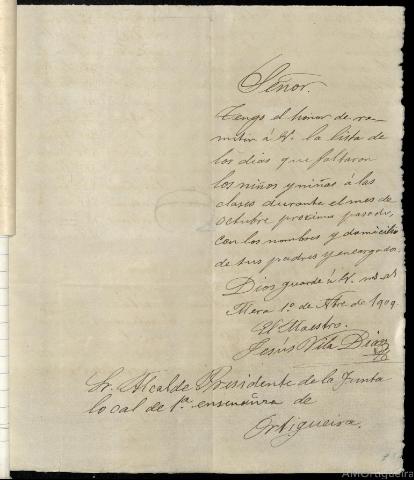 Señor.
Tengo el honor de re-
mitir á V. la lista de
los días que faltaron
los niños y niñas á las
clases durante el mes de
octubre próximo pasado,
con los nombres y domicilio
de sus padres y encargados.
Dios guarde á V. m. a.
Mera 1º de Nbre. de 1909
El Maestro.
Jesús Vila Díaz
Sr. Alcalde Presidente de la Junta
local de 1ª enseñanza de
Ortigueira.
AMOrtigueira